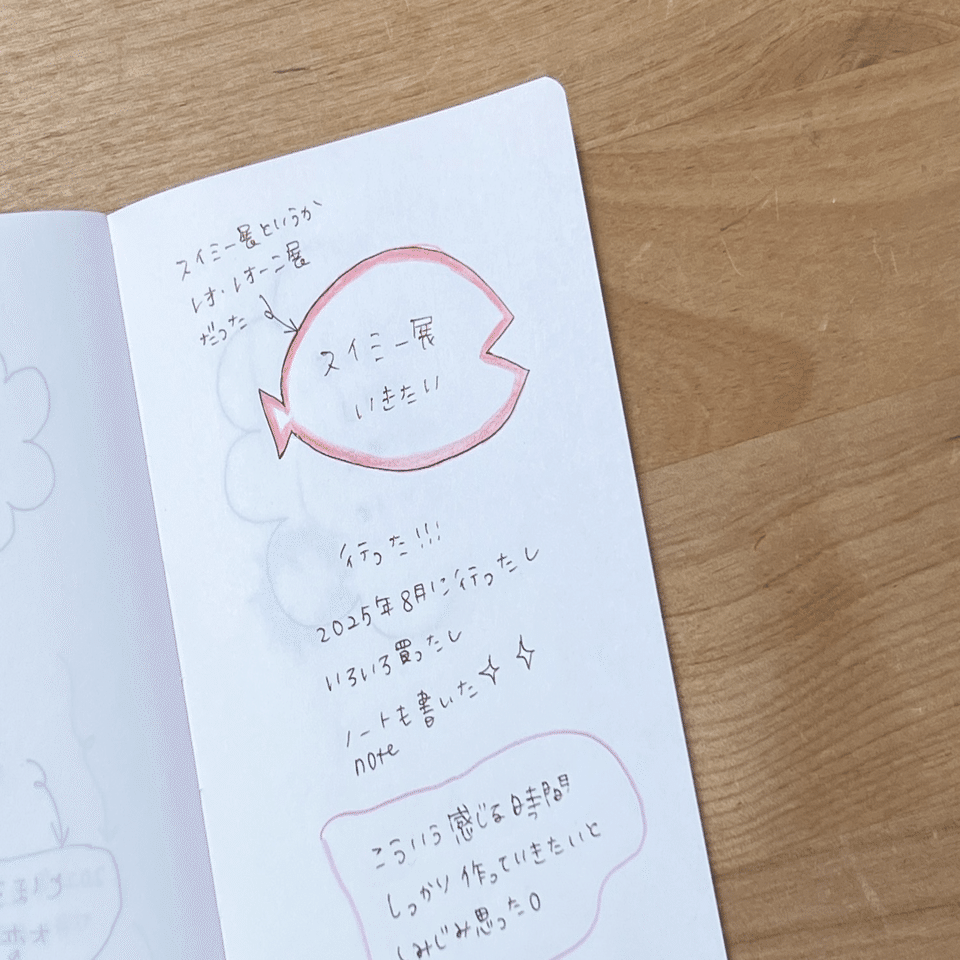 スイミー展というか
レオ・レオーニ展
だった
スイミー展
いきたい
行った!!!
2025年8月に行ったし
いろいろ買ったし
ノートも書いた
note
こういう感じる時間
しっかり作っていきたいと
しみじみ思った。